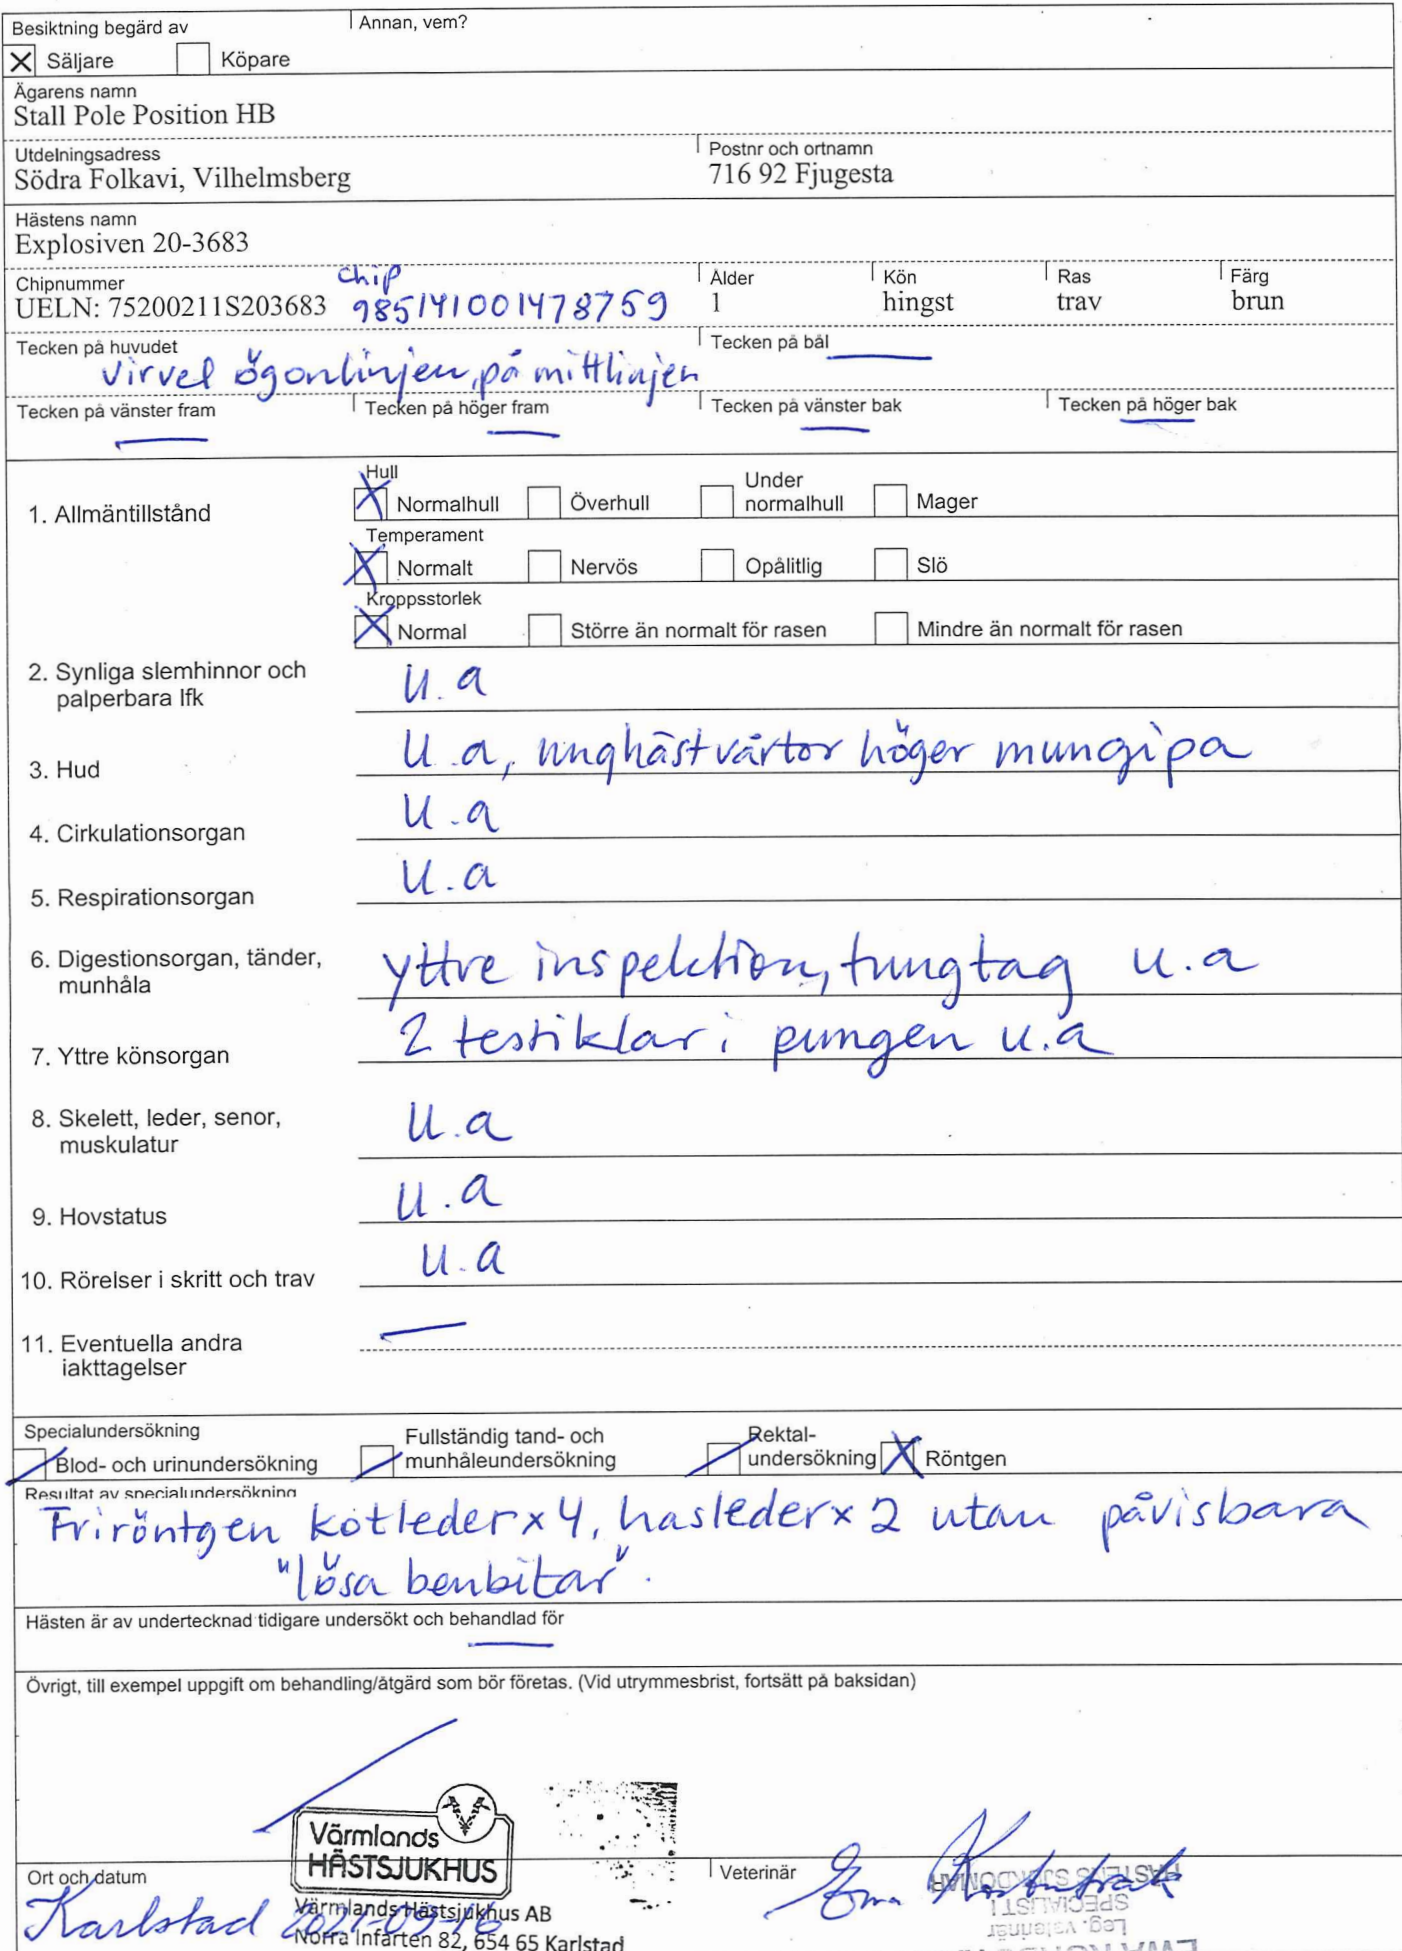 Besiktning begärd av
Annan, vem?
Säljare Köpare
Ägarens namn
Stall Pole Position HB
Utdelningsadress
Postnr och ortnamn
Södra Folkavi, Vilhelmsberg
716 92 Fjugesta
Hästens namn
Explosiven 20-3683
Chipnummer chip Ålder Kön Ras Färg
UELN: 75200211S203683 985141001478759 1 hingst trav brun
Tecken på huvudet Tecken på bål
virvel ögonlinjen, på mittlinjen
Tecken på vänster fram Tecken på höger fram Tecken på vänster bak Tecken på höger bak
1. Allmäntillstånd
Hull
Normalhull Överhull Under normalhull Mager
Temperament
Normalt Nervös Opålitlig Slö
Kroppsstorlek
Normal Större än normalt för rasen Mindre än normalt för rasen
2. Synliga slemhinnor och
palperbara lfk
u.a
3. Hud
u.a, unghästvårtor höger mungipa
4. Cirkulationsorgan
u.a
5. Respirationsorgan
u.a
6. Digestionsorgan, tänder,
munhåla
yttre inspektion, tungtag u.a
7. Yttre könsorgan
2 testiklar i pungen u.a
8. Skelett, leder, senor,
muskulatur
u.a
9. Hovstatus
u.a
10. Rörelser i skritt och trav
u.a
11. Eventuella andra
iakttagelser
Specialundersökning
Blod- och urinundersökning
Fullständig tand- och
munhåleundersökning
Rektal-
undersökning
Röntgen
Resultat av specialundersökning
Friröntgen kotleder x 4, hasleder x 2 utan påvisbara
"lösa benbitar".
Hästen är av undertecknad tidigare undersökt och behandlad för
Övrigt, till exempel uppgift om behandling/åtgärd som bör företas. (Vid utrymmesbrist, fortsätt på baksidan)
Värmlands
HÄSTSJUKHUS
Ort och datum
Veterinär
Karlstad 2021-09-16
Värmlands Hästsjukhus AB
Norra Infarten 82, 654 65 Karlstad
HÄSTENS SJUKDOMAR
SPECIALIST I
Leg. veterinär